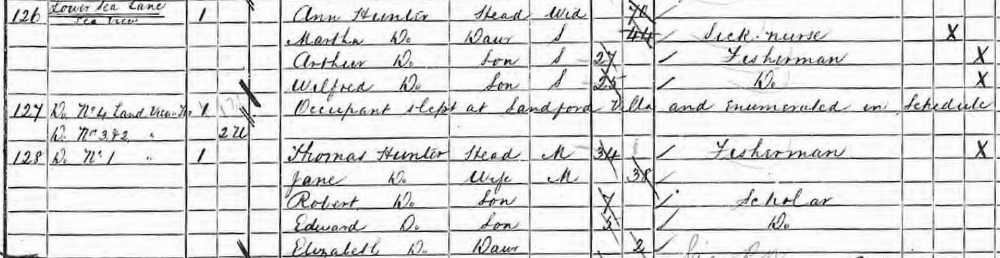 126 Lower Sea Lane 1 Ann Hunter Head Wid 70
Sea View
Martha Do Daur S 44 Sick-nurse X
Arthur Do Son S 27 Fisherman X
Wilfred Do Son S 25 Do X
127 Do No 4 Land View 1 Occupant slept at Sandford Villa and enumerated in Schedule
Do No 3 & 2 " 2 U
128 Do No 1 " 1 Thomas Hunter Head M 34 Fisherman X
Jane Do Wife M 38
Robert Do Son 7 Scholar
Edward Do Son 5 Do
Elizabeth Do Daur 2